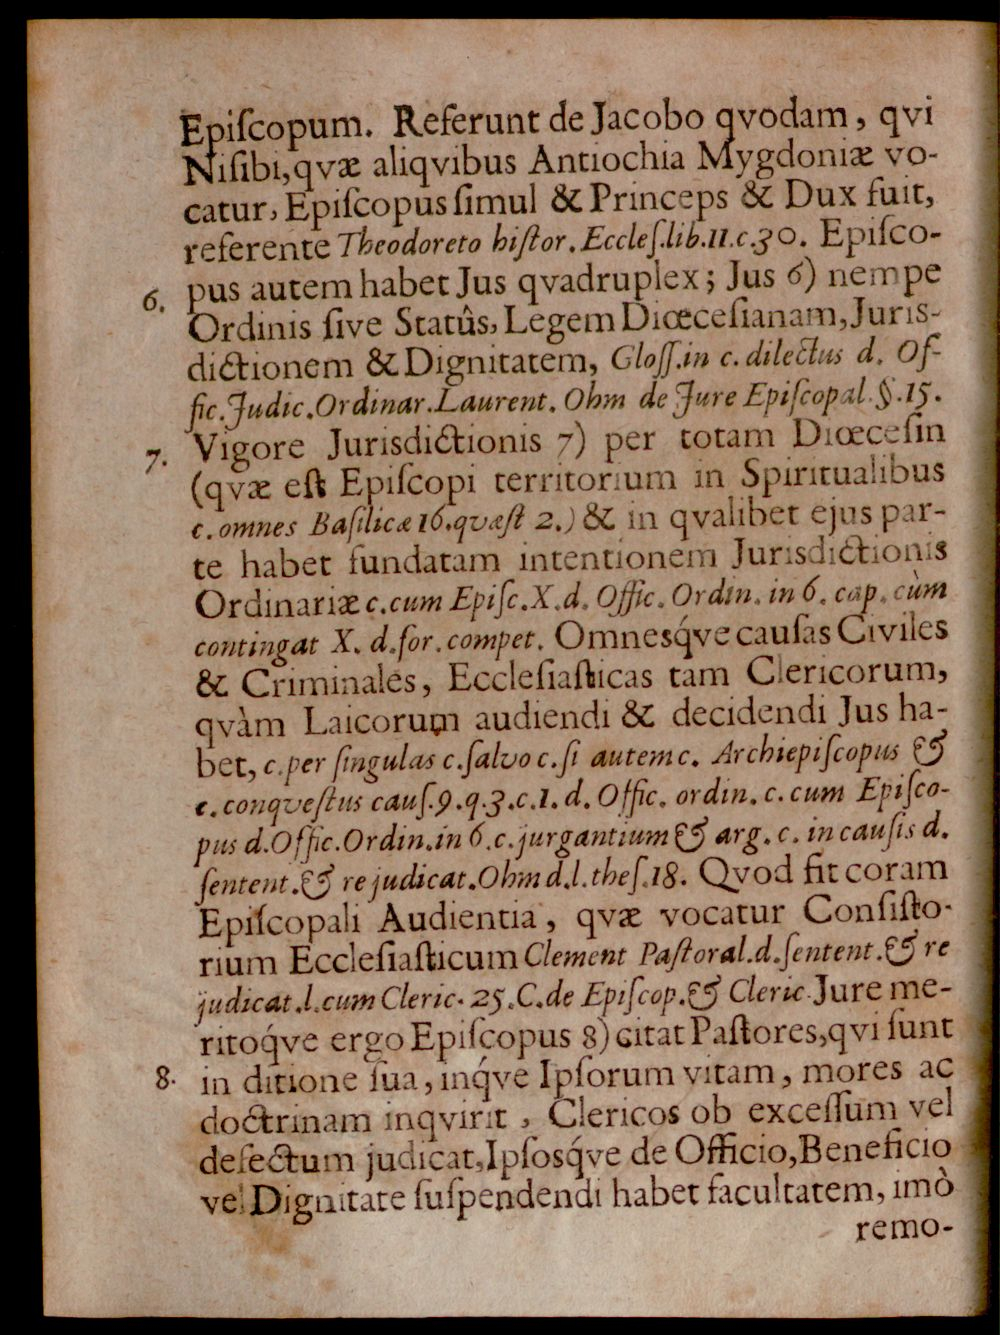 Epiſcopum. Referunt de Jacobo qvodam, qvi
Niſibi, qvæ aliqvibus Antiochia Mygdoniæ vo-
catur, Epiſcopus ſimul & Princeps & Dux fuit,
referente Theodoreto hiſtor. Eccleſ. lib. 11. c. 30. Epiſco-
6. pus autem habet Jus qvadruplex; Jus 6) nempe
Ordinis ſive Statûs, Legem Diœceſianam, Juris-
dictionem & Dignitatem, Gloſſ. in c. dilectus d. Of-
fic. Judic. Ordinar. Laurent. Ohm de Jure Epiſcopal. §. 15.
7. Vigore Jurisdictionis 7) per totam Diœceſin
(qvæ eſt Epiſcopi territorium in Spiritualibus
c. omnes Baſilicæ 16. qvæſt 2.) & in qvalibet ejus par-
te habet fundatam intentionem Jurisdictionis
Ordinariæ c. cum Epiſc. X. d. Offic. Ordin. in 6. cap. cùm
contingat X. d. for. compet. Omnesq́ve cauſas Civiles
& Criminales, Eccleſiaſticas tam Clericorum,
qvàm Laicorum audiendi & decidendi Jus ha-
bet, c. per ſingulas c. ſalvo c. ſi autem c. Archiepiſcopus &
c. conqveſtus cauſ. 9. q. 3. c. 1. d. Offic. ordin. c. cum Epiſco-
pus d. Offic. Ordin. in 6. c. jurgantium & arg. c. in cauſis d.
ſentent. & re judicat. Ohm d. l. theſ. 18. Qvod fit coram
Epiſcopali Audientia, qvæ vocatur Conſiſto-
rium Eccleſiaſticum Clement Paſtoral. d. ſentent. & re
judicat. l. cum Cleric. 25. C. de Epiſcop. & Cleric. Jure me-
ritoq́ve ergo Epiſcopus 8) citat Paſtores, qvi ſunt
8. in ditione ſua, inq́ve Ipſorum vitam, mores ac
doctrinam inqvirit, Clericos ob exceſſum vel
defectum judicat, Ipſosq́ve de Officio, Beneficio
vel Dignitate ſuſpendendi habet facultatem, imò
remo-